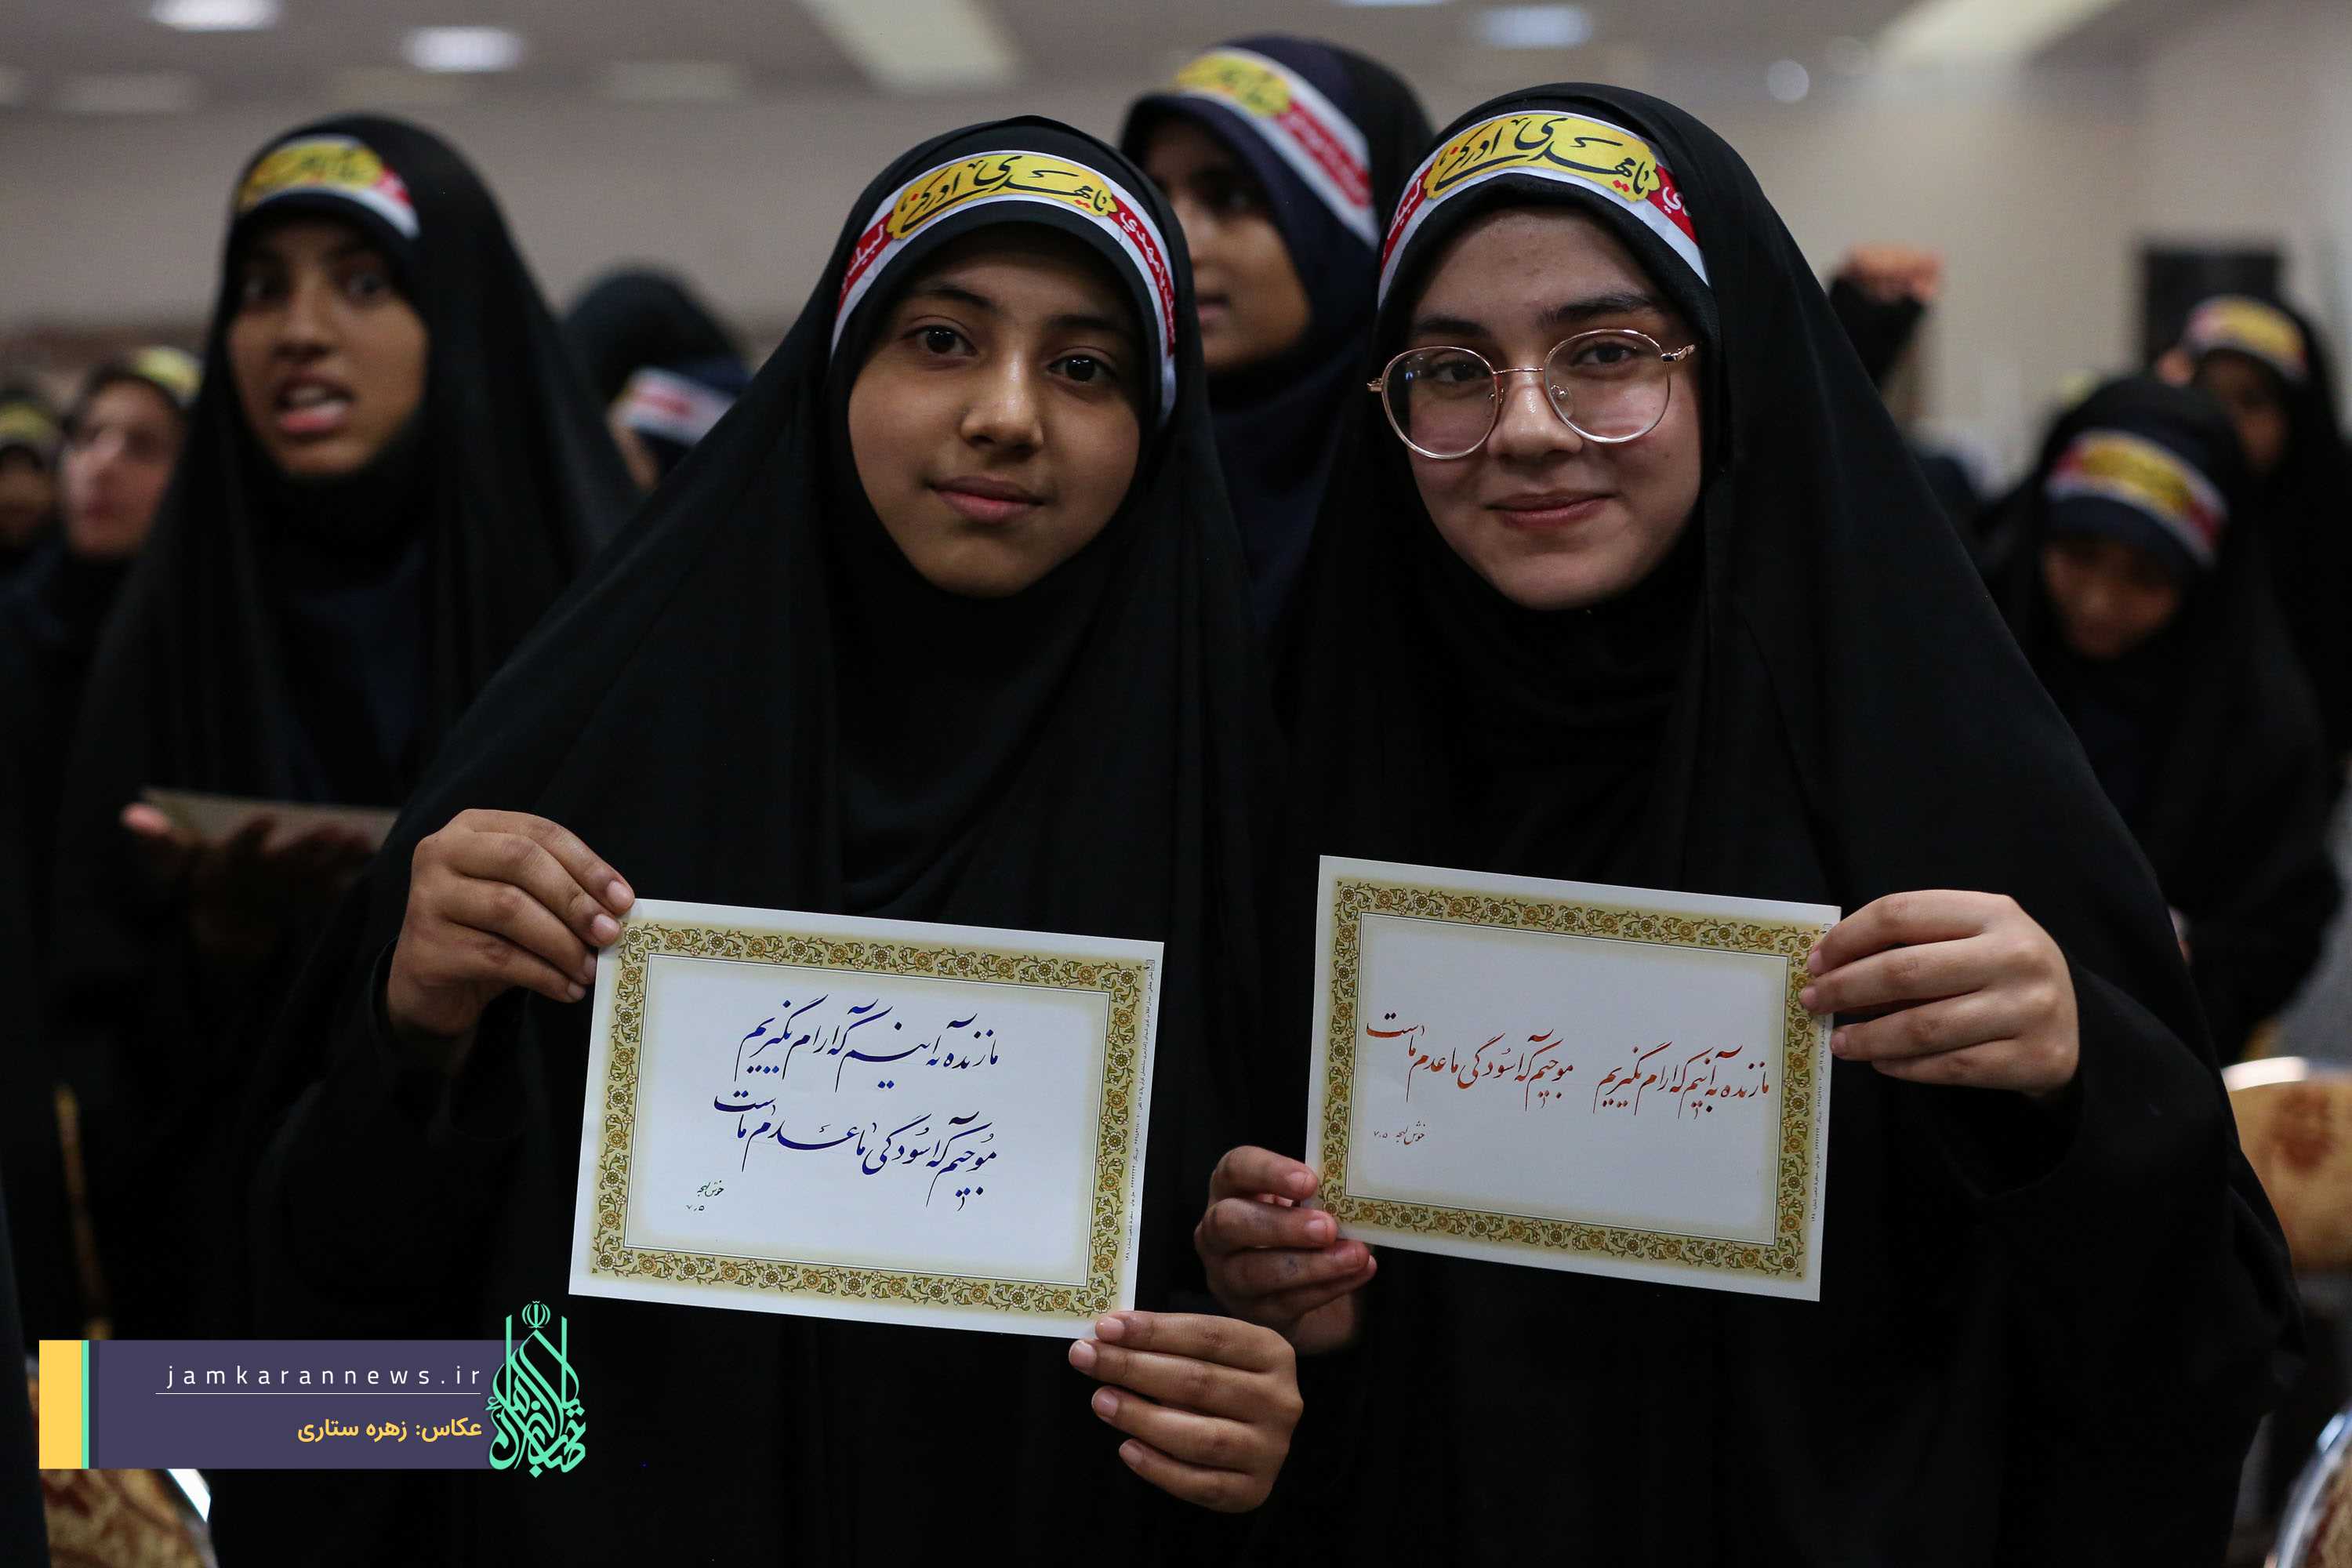 یا مهدی ادرکنی
لبیک یا مهدی
یا مهدی ادرکنی
لبیک
ما زنده به آنیم که آرام نگیریم
موجیم که آسودگی ما عدم ماست
خوش لهجه
۷،۵
ما زنده به آنیم که آرام نگیریم موجیم که آسودگی ما عدم ماست
خوش لهجه ۷،۵
jamkarannews.ir
عکاس: زهره ستاری